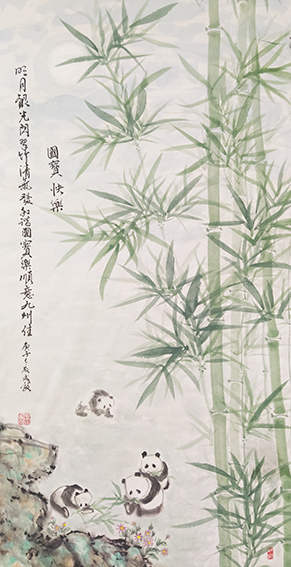 國寶快樂
明月銀光閃翠竹清氣發知諧國寶樂順意九州佳